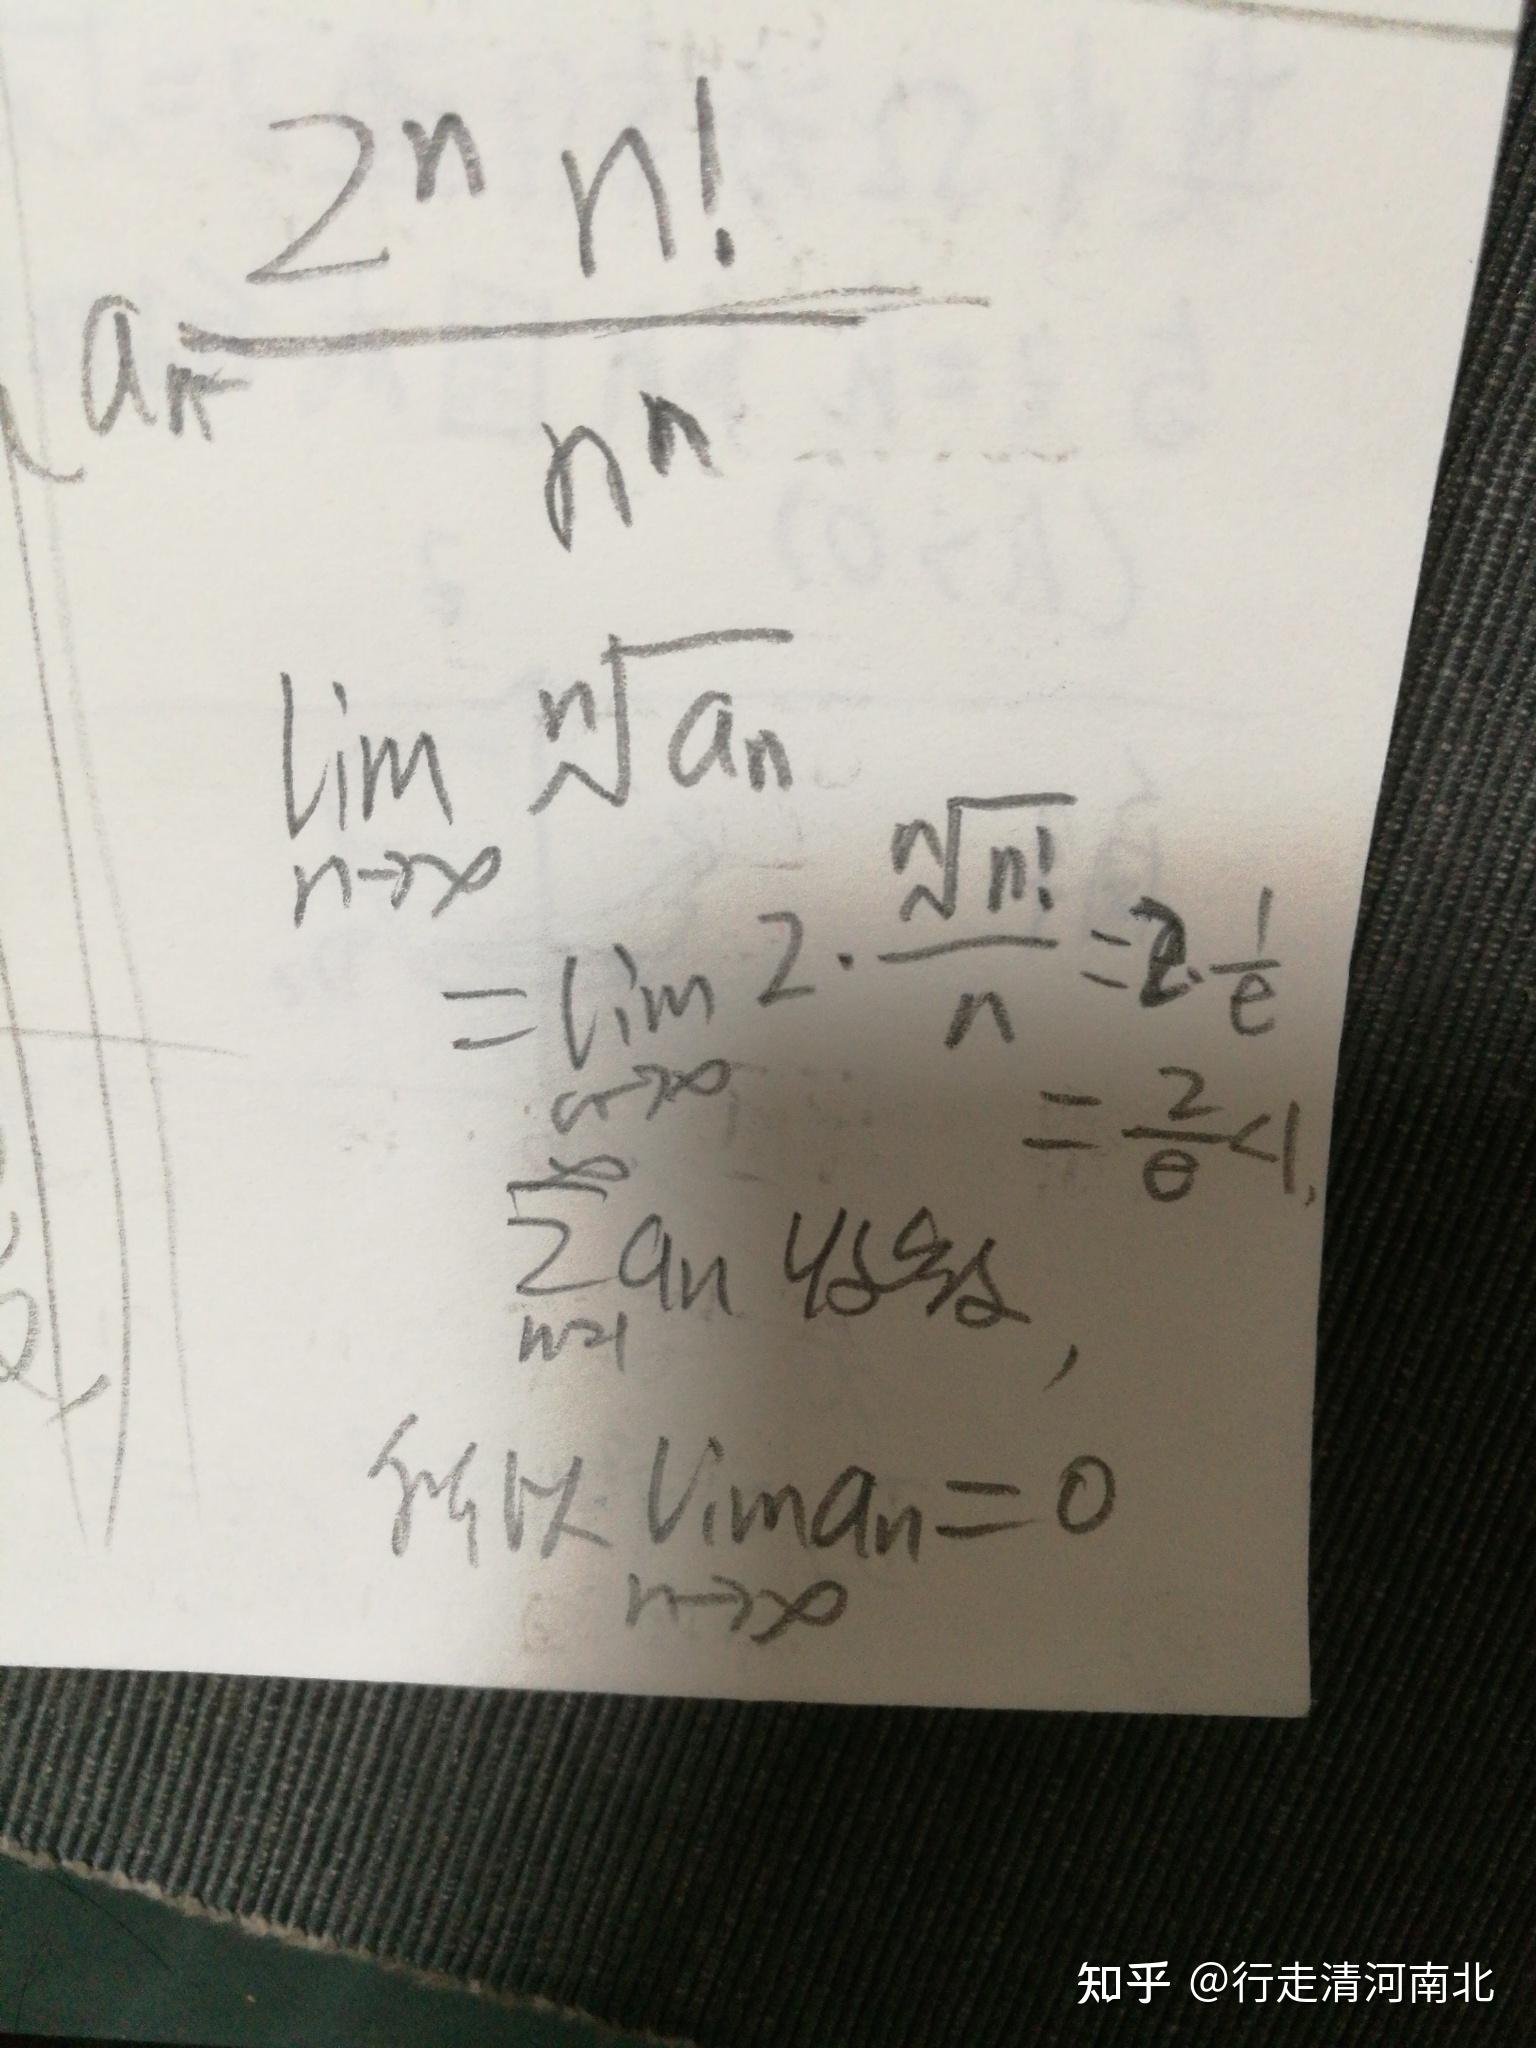 aₙ = 2ⁿ n! / nⁿ
lim n→∞ ⁿ√aₙ
= lim n→∞ 2 · ⁿ√n! / n = 2 · 1/e
= 2/e < 1,
∞ Σ n=1 aₙ 收敛,
所以 lim n→∞ aₙ = 0
知乎 @行走清河南北